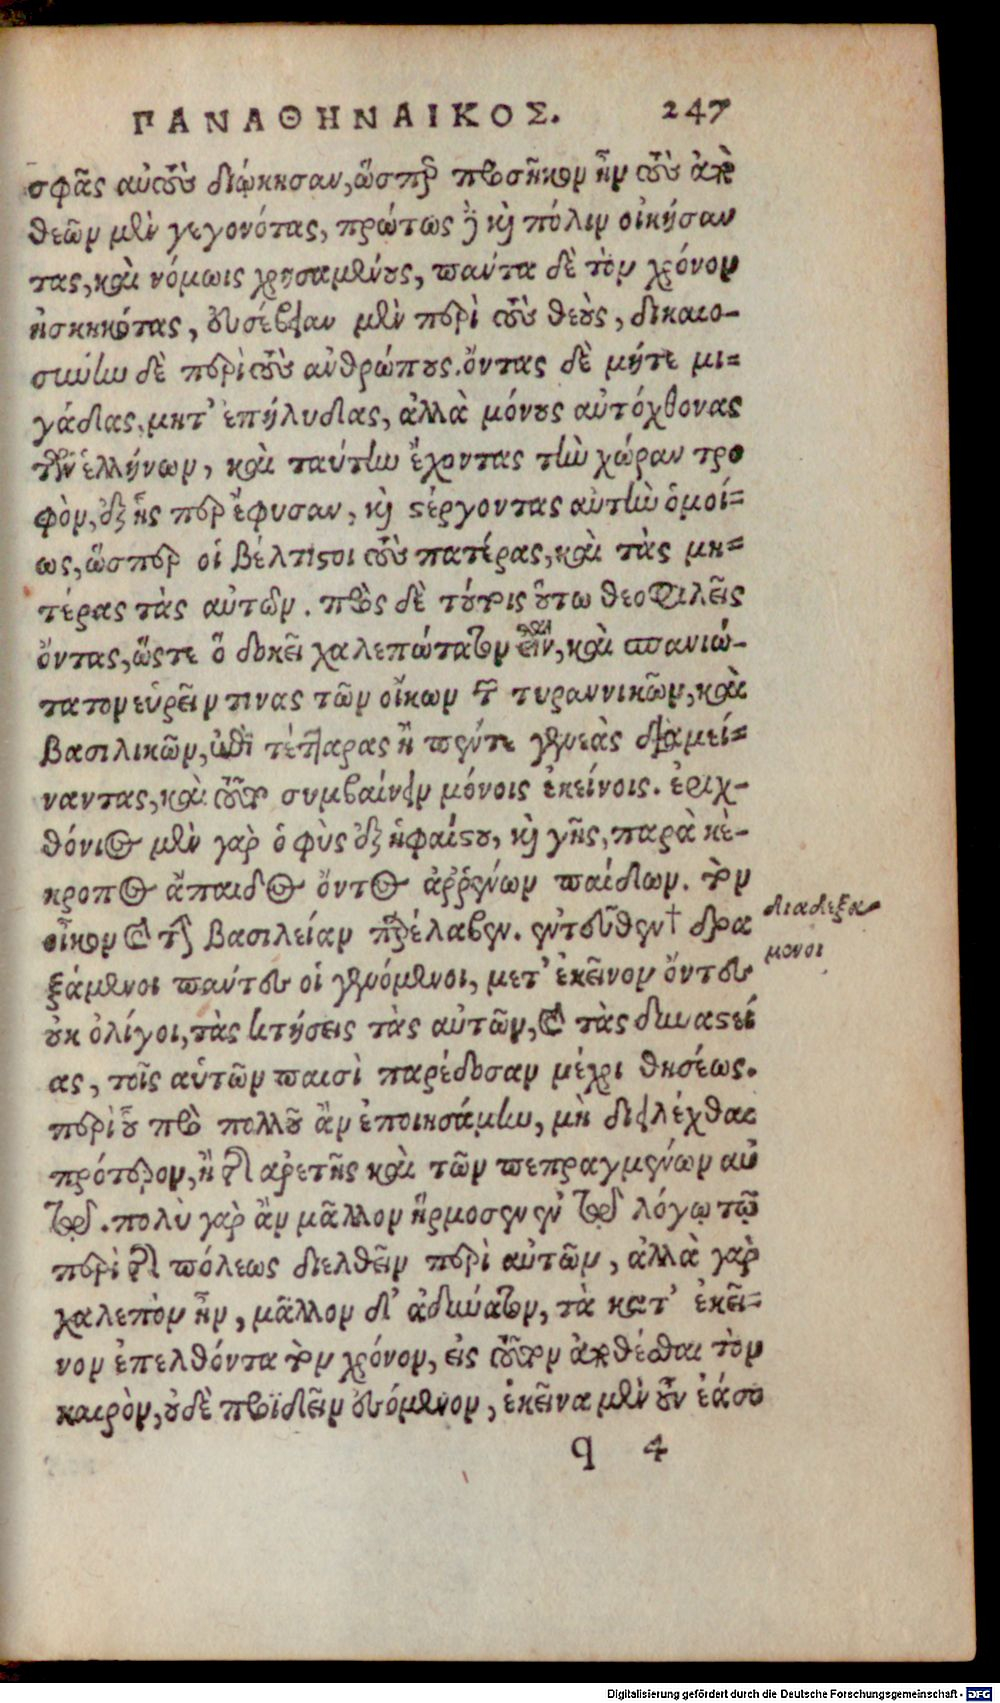 ΠΑΝΑΘΗΝΑΙΚΟΣ. 247
σφᾶς αὐτοὺς διῴκησαν, ὥσπερ προσῆκον ἦν τοὺς ἀπὸ
θεῶν μὲν γεγονότας, πρώτως δὲ καὶ πόλιν οἰκήσαν
τας, καὶ νόμοις χρησαμένους, πάντα δὲ τὸν χρόνον
ἠσκηκότας, εὐσέβειαν μὲν περὶ τοὺς θεοὺς, δικαιο-
σύνην δὲ περὶ τοὺς ἀνθρώπους. ὄντας δὲ μήτε μι-
γάδας, μητ' ἐπήλυδας, ἀλλὰ μόνους αὐτόχθονας
τῶν ἑλλήνων, καὶ ταύτην ἔχοντας τὴν χώραν τρο
φὸν, ἐξ ἧς περ ἔφυσαν, καὶ στέργοντας αὐτὴν ὁμοί-
ως, ὥσπερ οἱ βέλτιστοι τοὺς πατέρας, καὶ τὰς μη-
τέρας τὰς αὐτῶν. πρὸς δὲ τούτοις οὕτω θεοφιλεῖς
ὄντας, ὥστε ὃ δοκεῖ χαλεπώτατον εἶναι, καὶ σπανιώ-
τατον εὑρεῖν τινας τῶν οἴκων τῶν τυραννικῶν, καὶ
βασιλικῶν, ἐπὶ τέτταρας ἢ πέντε γενεὰς διαμεί-
ναντας, καὶ τοῦτο συμβαίνειν μόνοις ἐκείνοις. ἐριχ-
θόνιος μὲν γὰρ ὁ φὺς ἐξ ἡφαίστου, καὶ γῆς, παρὰ κέ-
κροπος ἄπαιδος ὄντος ἀῤῥένων παίδων. τὸν
οἶκον καὶ τὴν βασιλείαν παρέλαβεν. ἐντεῦθεν † δρα
ξάμενοι πάντες οἱ γενόμενοι, μετ' ἐκεῖνον ὄντες
οὐκ ὀλίγοι, τὰς κτήσεις τὰς αὑτῶν, καὶ τὰς δυναστεί
ας, τοῖς αὑτῶν παισὶ παρέδοσαν μέχρι θησέως.
περὶ οὗ πρὸ πολλοῦ ἂν ἐποιησάμην, μὴ διειλέχθαι
πρότερον, ἢ τῆς ἀρετῆς καὶ τῶν πεπραγμένων αὐ
τῷ. πολὺ γὰρ ἂν μᾶλλον ἥρμοσεν ἐν τῷ λόγῳ τῷ
περὶ τῆς πόλεως διελθεῖν περὶ αὐτῶν, ἀλλὰ γὰρ
χαλεπὸν ἦν, μᾶλλον δ' ἀδύνατον, τὰ κατ' ἐκεῖ-
νον ἐπελθόντα τὸν χρόνον, εἰς τοῦτον ἀποθέσθαι τὸν
καιρὸν, οὐδὲ προϊδεῖν ἐσόμενον, ἐκεῖνα μὲν οὖν ἐάσω
q 4
διαδεξά
μενοι
Digitalisierung gefördert durch die Deutsche Forschungsgemeinschaft - DFG